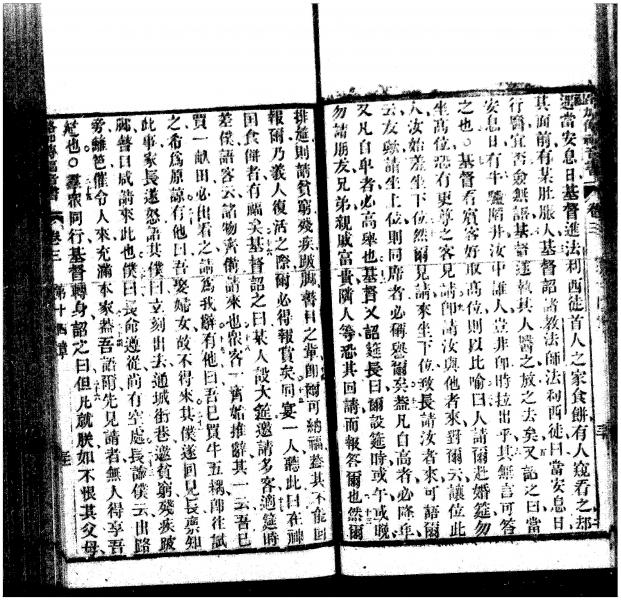 遇當安息日基督進法利西徒首人之家食餅有人窺看之却
其面前有某肚脹人基督詔諸教法師法利西徒曰當安息日
行醫宜否僉無語基督遂執其人醫之放之去矣又詔之曰當
安息日有牛驢陷井汝中誰人豈非卽時拉出乎其無言可答
之也○基督看賓客好取高位則以此喻曰人請爾赴婚筵勿
坐高位恐有更尊之客見請卽請汝與他者來對爾云讓位此
人汝始羞坐下位然爾見請來坐下位致長請汝者來可語爾
云友聯請坐上位則同席者必稱譽爾矣蓋凡自高者必降卑
又凡自卑者必高舉也基督又詔筵長曰爾設筵時或午或晚
勿請朋友兄弟親戚富貴隣人等恐其回請而報答爾也然爾
排筵則請貧窮殘疾跛脚瞽目之輩卽爾可納福蓋其不能回
報爾乃義人復活之際爾必得報賞矣同宴一人聽此曰在神
國食餅者有福矣基督詔之曰某人設大筵邀請多客適筵時
差僕語客云諸物齊備請來也衆客一齊始推辭其一云吾已
買一畝田必出看之請爲我辭有他曰吾已買牛五耦卽往試
之希爲原諒有他曰吾娶婦女故不得來其僕遂回見長禀知
此事家長遂怒語其僕曰立刻出去通城街巷邀貧窮殘疾跛
脚瞽目咸請來此也僕曰長命遵從尚有空處長諭僕云出路
旁籬笆催令人來充滿本家蓋吾語爾先見請者無人得享吾
筵也○羣衆同行基督轉身詔之曰但凡就朕如不恨其父母
路加傳福音書 卷三 第十四章